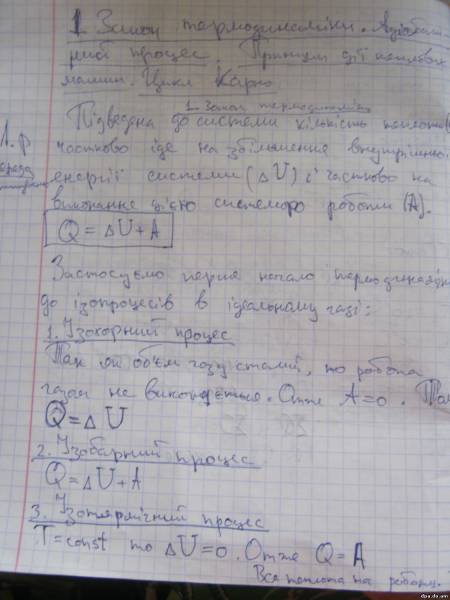 1 Закон термодинаміки. Адіабат-
ний процес. Принцип дії теплових
машин. Цикл Карно
1. Закон термодинаміки
Підведена до системи кількість теплоти
частково іде на збільшення внутрішньої
енергії системи (ΔU) і частково на
виконання цією системою роботи (A).
Q = ΔU + A
Застосуємо перше начало термодинаміки
до ізопроцесів в ідеальному газі:
1. Ізохорний процес
Так як об'єм газу сталий, то робота
газом не виконується. Отже A=0.
Q = ΔU
2. Ізобарний процес
Q = ΔU + A
3. Ізотермічний процес
T = const то ΔU = 0. Отже Q = A
Вся теплота на роботу.
dpa.do.am